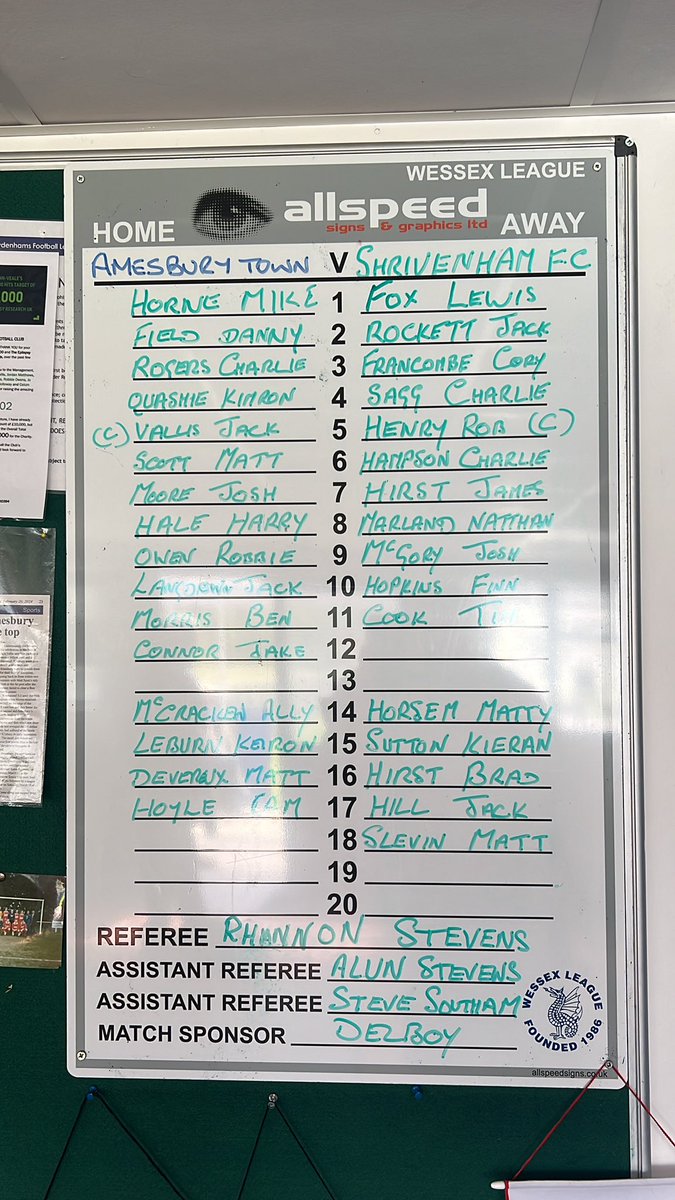 WESSEX LEAGUE
allspeed
signs & graphics ltd
HOME AWAY
AMESBURY TOWN V SHRIVENHAM F.C
HORNE MIKE 1 FOX LEWIS
FIELD DANNY 2 ROCKETT JACK
ROGERS CHARLIE 3 FRANCOMBE CORY
QUASHIE KIMRON 4 SAGG CHARLIE
(C) VALLIS JACK 5 HENRY ROB (C)
SCOTT MATT 6 HAMPSON CHARLIE
MOORE JOSH 7 HIRST JAMES
HALE HARRY 8 MARLAND NATTHAN
OWEN ROBBIE 9 McGORY JOSH
LANSDOWN JACK 10 HOPKINS FINN
MORRIS BEN 11 COOK TIM
CONNOR JAKE 12
13
McCRACKEN ALLY 14 HORSEM MATTY
LEBURN KEIRON 15 SUTTON KIERAN
DEVEREUX MATT 16 HIRST BRAD
HOYLE CAM 17 HILL JACK
18 SLEVIN MATT
19
20
REFEREE RHANNON STEVENS
ASSISTANT REFEREE ALUN STEVENS
ASSISTANT REFEREE STEVE SOUTHAM
MATCH SPONSOR DELBOY
WESSEX LEAGUE
FOUNDED 1986
allspeedsigns.co.uk